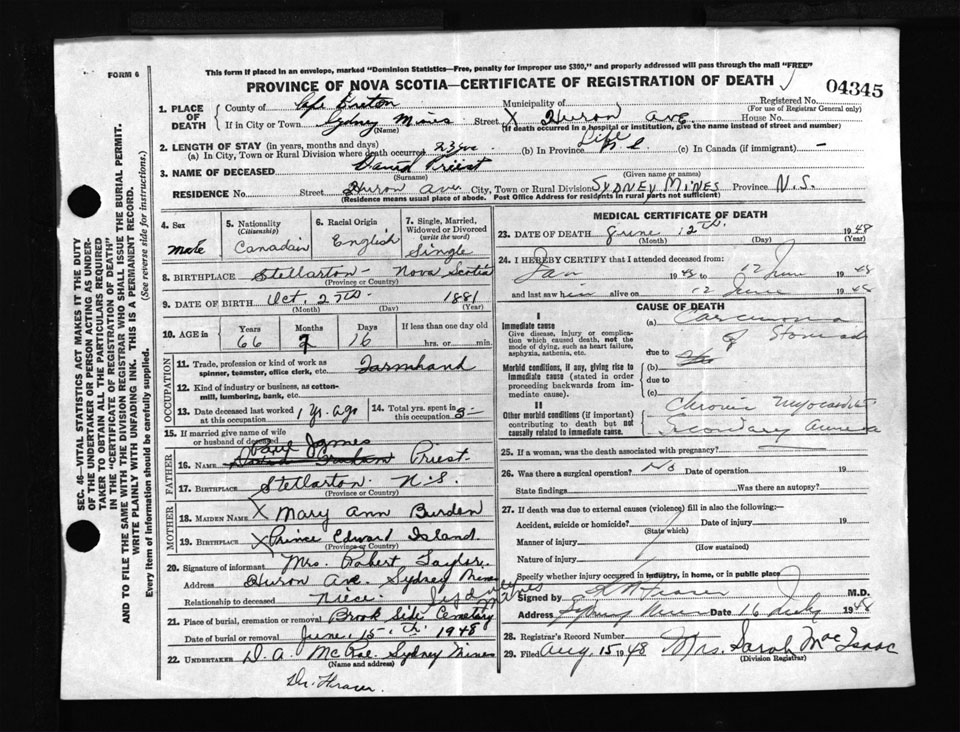 FORM 6
This form if placed in an envelope, marked "Dominion Statistics—Free, penalty for improper use $300," and properly addressed will pass through the mail "FREE"
PROVINCE OF NOVA SCOTIA—CERTIFICATE OF REGISTRATION OF DEATH
04345
SEC. 46—VITAL STATISTICS ACT MAKES IT THE DUTY
OF THE UNDERTAKER OR PERSON ACTING AS UNDER-
TAKER TO OBTAIN ALL THE PARTICULARS REQUIRED
IN THE "CERTIFICATE OF REGISTRATION OF DEATH"
AND TO FILE THE SAME WITH THE DIVISION REGISTRAR WHO SHALL ISSUE THE BURIAL PERMIT.
WRITE PLAINLY WITH UNFADING INK. THIS IS A PERMANENT RECORD.
Every item of information should be carefully supplied. (See reverse side for instructions.)
1. PLACE OF DEATH
County of Cape Breton Municipality of Registered No.
(For use of Registrar General only)
If in City or Town Sydney Mines Street X Huron Ave House No.
(Name) (If death occurred in a hospital or institution, give the name instead of street and number)
2. LENGTH OF STAY (in years, months and days)
(a) In City, Town or Rural Division where death occurred 23 yrs (b) In Province Life (c) In Canada (if immigrant) —
3. NAME OF DECEASED David Priest
(Surname) (Given name or names)
RESIDENCE No. Street Huron Ave. City, Town or Rural Division SYDNEY MINES Province N.S.
(Residence means usual place of abode. Post Office Address for residents in rural parts not sufficient)
4. Sex male
5. Nationality (Citizenship) Canadian
6. Racial Origin English
7. Single, Married, Widowed or Divorced (write the word) Single
8. BIRTHPLACE Stellarton - Nova Scotia
(Province or Country)
9. DATE OF BIRTH Oct. 27th 1881
(Month) (Day) (Year)
10. AGE in Years Months Days If less than one day old
66 7 16 hrs. or min.
OCCUPATION
11. Trade, profession or kind of work as spinner, teamster, office clerk, etc. Farmhand
12. Kind of industry or business, as cotton-mill, lumbering, bank, etc.
13. Date deceased last worked at this occupation 1 Yr. ago 14. Total yrs. spent in this occupation
15. If married give name of wife or husband of deceased
FATHER
16. Name James Priest
17. Birthplace Stellarton N.S.
(Province or Country)
MOTHER
18. Maiden Name X Mary Ann Burden
19. Birthplace X Prince Edward Island
(Province or Country)
20. Signature of informant Mrs. Robert Taylor
Address Huron Ave. Sydney Mines
Relationship to deceased Niece. Sydney Mines
21. Place of burial, cremation or removal Brook Side Cemetery
Date of burial or removal June 15th 1948
22. UNDERTAKER D. A. McRae. Sydney Mines
(Name and address)
Dr. Fraser.
MEDICAL CERTIFICATE OF DEATH
23. DATE OF DEATH June 12th. 1948
(Month) (Day) (Year)
24. I HEREBY CERTIFY that I attended deceased from:
Jan 1948 to 12 June 1948
and last saw him alive on 12 June 1948
CAUSE OF DEATH
I
Immediate cause (a) Carcinoma
Give disease, injury or complica-
tion which caused death, not the
mode of dying, such as heart failure,
asphyxia, asthenia, etc.
of Stomach
due to
Morbid conditions, if any, giving rise to
immediate cause (stated in order
proceeding backwards from im-
mediate cause).
(b)
due to
(c)
II
Other morbid conditions (if important)
contributing to death but not
causally related to immediate cause.
Chronic Myocarditis
Secondary Anemia
25. If a woman, was the death associated with pregnancy?
26. Was there a surgical operation? No Date of operation 19
State findings Was there an autopsy?
27. If death due to external causes (violence) fill in also the following:—
Accident, suicide or homicide? Date of injury 19
(State which)
Manner of injury
(How sustained)
Nature of injury
Specify whether injury occurred in industry, in home, or in public place
Signed by Fraser M.D.
Address Sydney Mines Date 16 July 1948
28. Registrar's Record Number
29. Filed Aug. 15 1948 Mrs. Sarah MacIsaac
(Division Registrar)